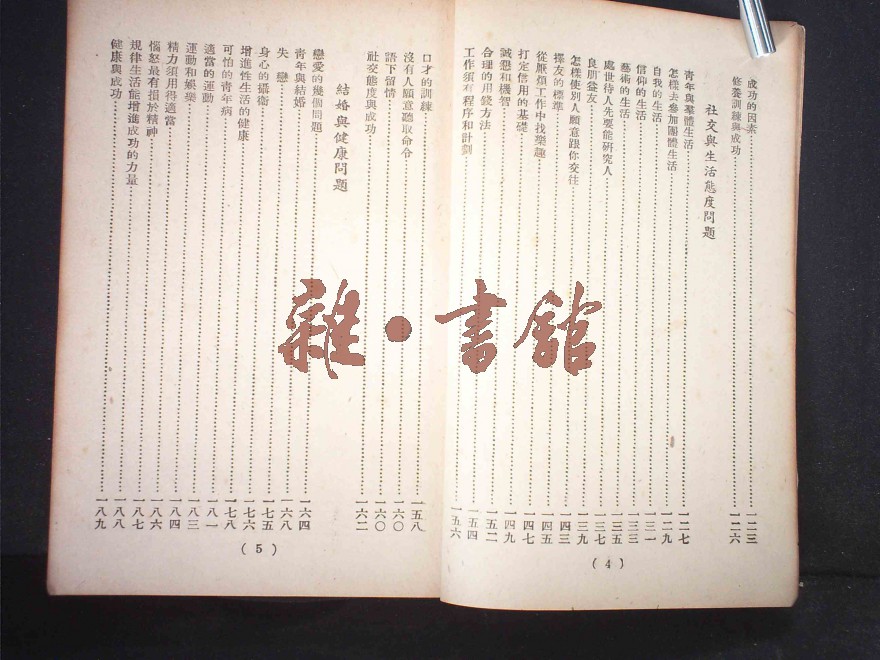 成功的因素……一二三
修養訓練與成功……一二六
社交與生活態度問題
青年與羣體生活……一二七
怎樣去參加團體生活……一二九
自我的生活……一三一
信仰的生活……一三三
藝術的生活……一三五
處世待人先要能研究人……一三七
良朋益友……一三九
怎樣使別人願意跟你交往……一四三
擇友的標準……一四五
從厭煩工作中找樂趣……一四七
打定信用的基礎……一四九
誠懇和機智……一五二
合理的用錢方法……一五四
工作須有程序和計劃……一五六
(4)
口才的訓練……一五八
沒有人願意聽取命令……一六〇
語下留情……一六〇
社交態度與成功……一六二
結婚與健康問題
戀愛的幾個問題……一六四
青年與結婚……一六八
失戀……一七五
身心的攝衛……一七六
增進性生活的健康……一七八
可怕的青年病……一八一
適當的運動……一八三
運動和娛樂……一八四
精力須用得適當……一八六
惱怒最有損於精神……一八七
規律生活能增進成功的力量……一八八
健康與成功……一八九
(5)
雜·書館